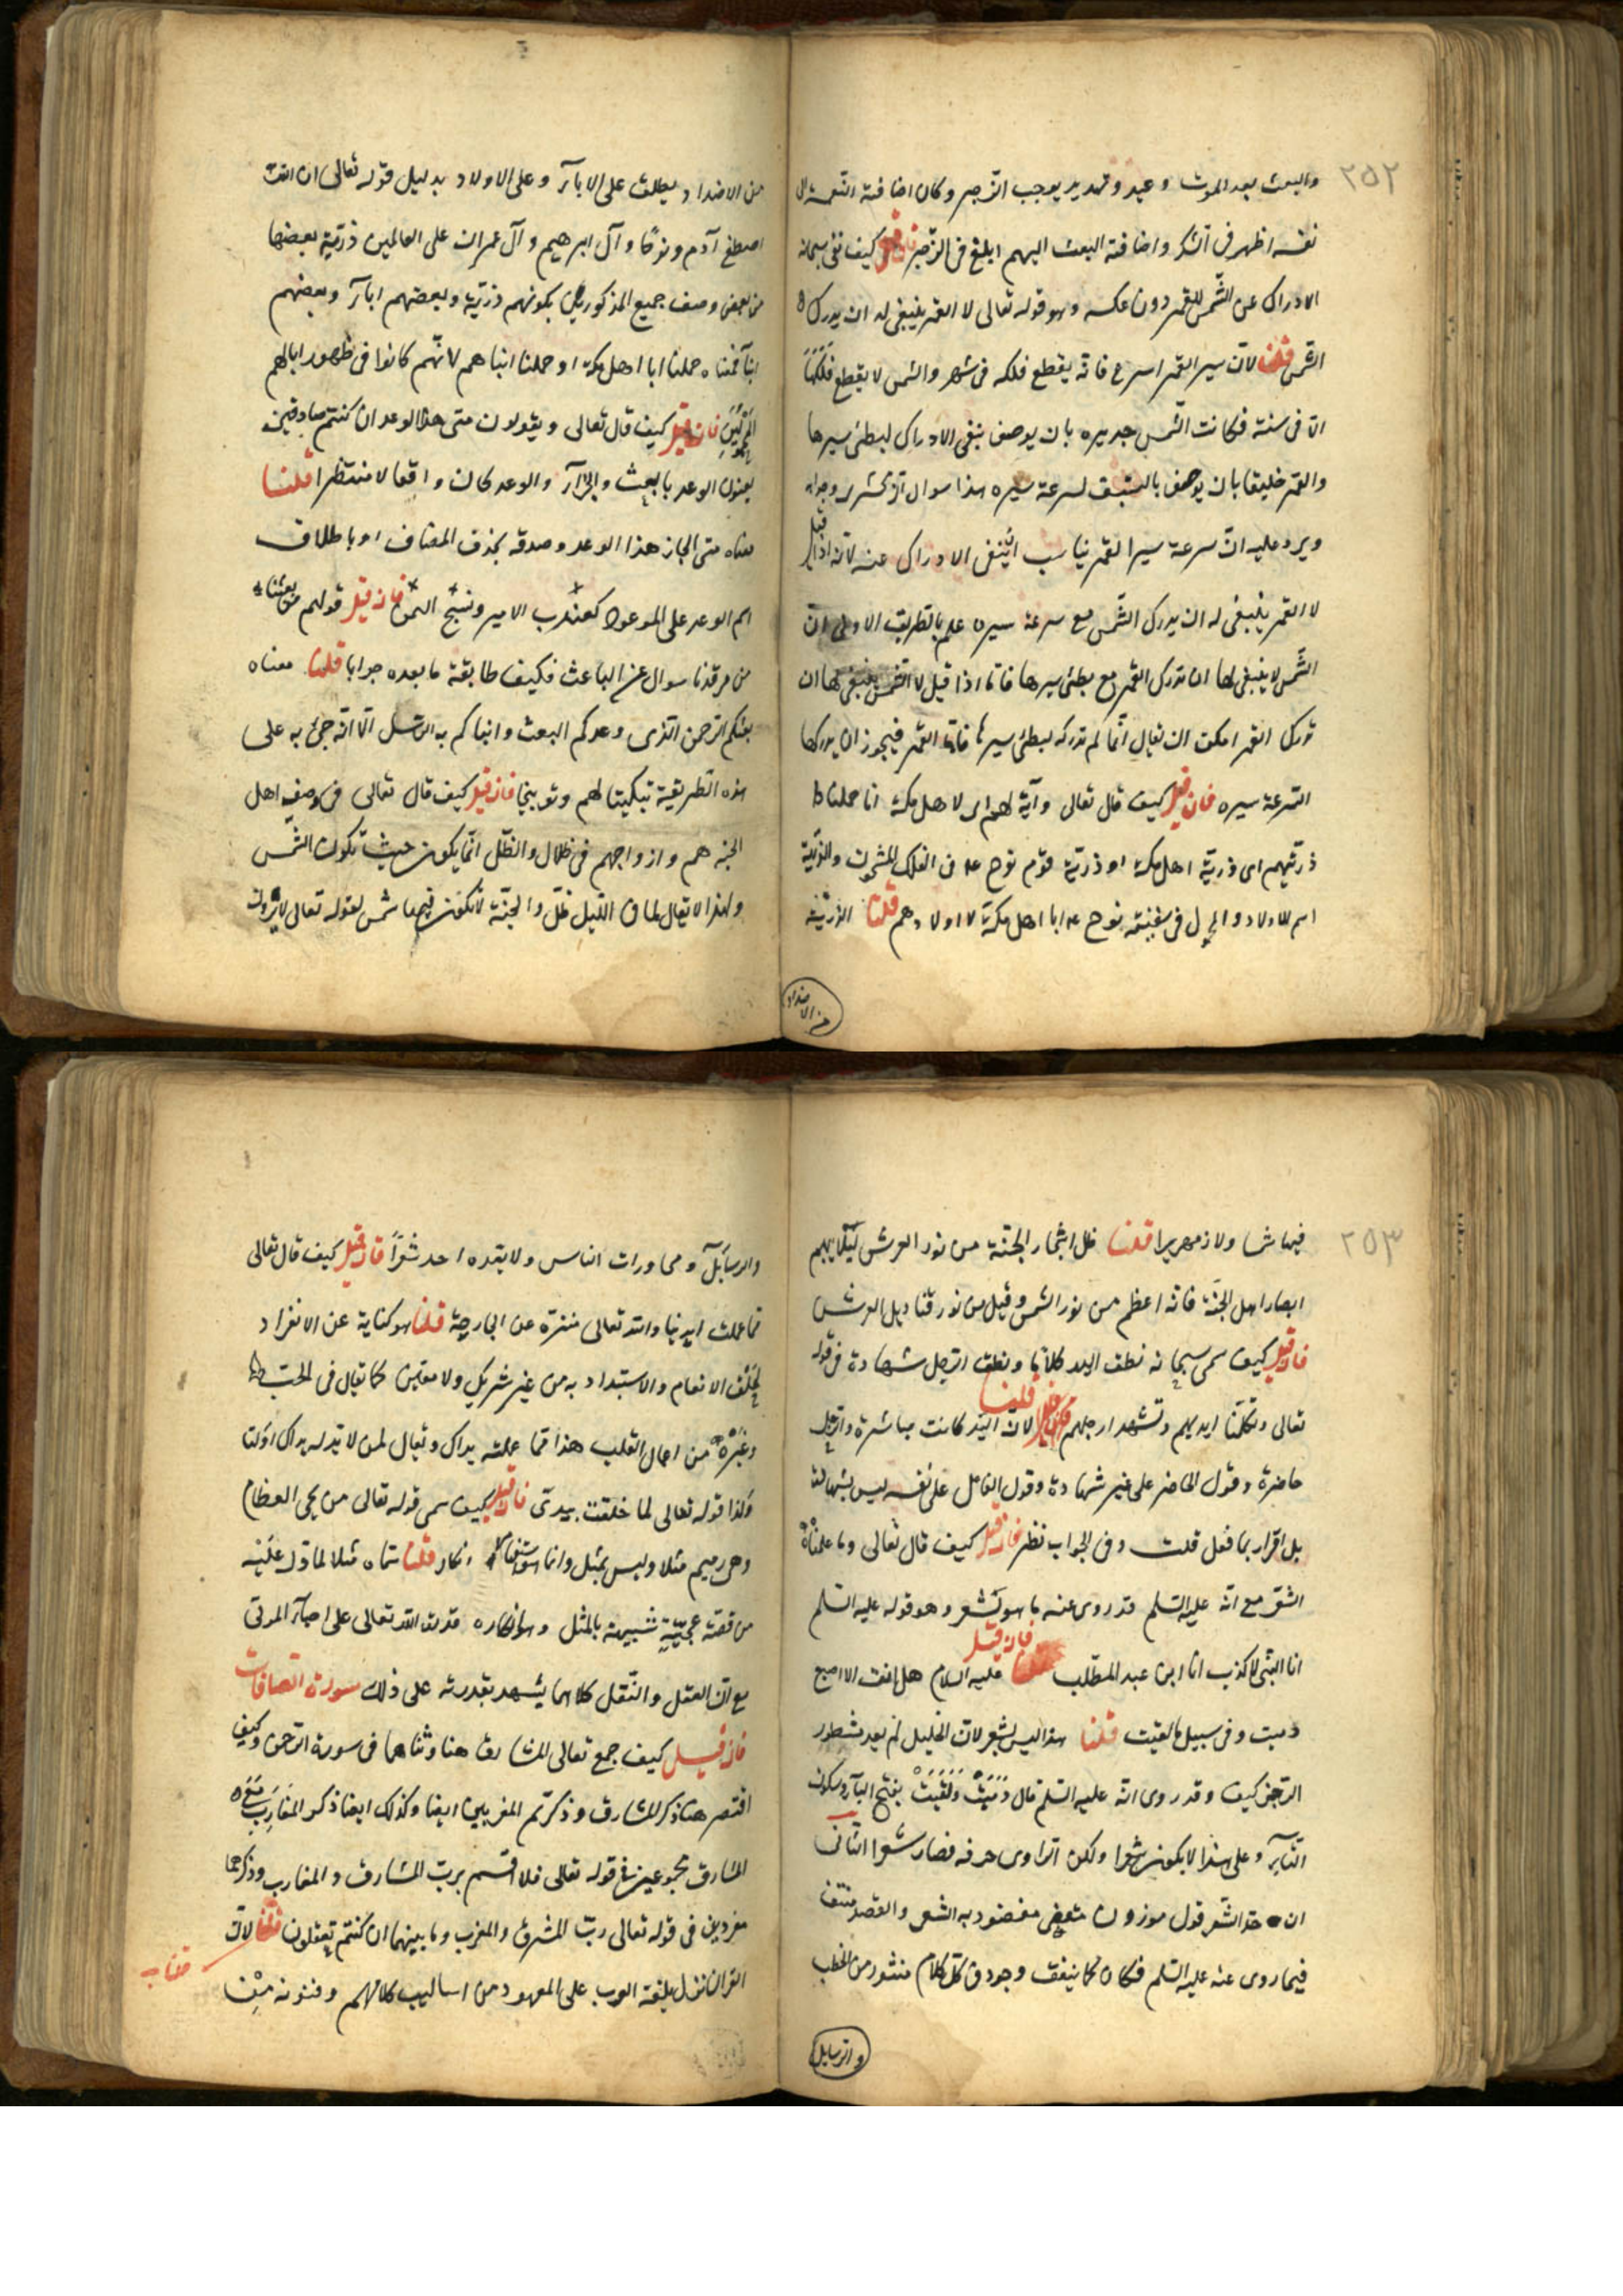 ٢٥٢
والبعث بعد الموت وعيد وتهديد يوجب الزجر وكان اضافة النعمة الى
نفسه اظهر فى الشكر واضافة البعث اليهم ابلغ فى الزجر فان قيل كيف نفى سبحانه
الادراك عن الشمس للقمر دون عكسه وهو قوله تعالى لا القمر ينبغى له ان يدرك
الشمس قلنا لان سير القمر اسرع فانه يقطع فلكه فى شهر والشمس لا يقطع فلكها
الا فى سنة فكانت الشمس جديرة بان يوصف بنفى الادراك لبطئ سيرها
والقمر خليقا بان يوصف بالسبق لسرعة سيره هذا سوال الزمخشرى وجوابه
ويرد عليه ان سرعة سير القمر يناسب ان ينفى الادراك عنه لانه اذا قيل
لا القمر ينبغى له ان يدرك الشمس مع سرعة سيره علم بالطريق الاولى ان
الشمس لا ينبغى لها ان تدرك القمر مع بطئ سيرها فاما اذا قيل لا الشمس ينبغى لها ان
تدرك القمر امكن ان يقال انما لم تدركه لبطئ سيرها فاما القمر فيجوز ان يدركها
لسرعة سيره فان قيل كيف قال تعالى وآية لهم اى لاهل مكة انا حملنا
ذريتهم اى ذرية اهل مكة او ذرية قوم نوح ع فى الفلك المشحون والذرية
اسم للاولاد والمحمول فى سفينة نوح ع ابا اهل مكة لا اولادهم قلنا الذرية
من الاضداد
من الاضداد يطلق على الاباء وعلى الاولاد بدليل قوله تعالى ان الله
اصطفى آدم ونوحا وآل ابرهيم وآل عمران على العالمين ذرية بعضها
من بعض وصف جميع المذكورين بكونهم ذرية وبعضهم اباء وبعضهم
ابناء فمعناه حملنا ابا اهل مكة او حملنا ابناهم لانهم كانوا فى ظهور ابائهم
المحمولين فان قيل كيف قال تعالى ويقولون متى هذا الوعد ان كنتم صادقين
يعنون الوعد بالبعث والجزاء والوعد كان واقعا لا منتظرا قلنا
معناه متى انجاز هذا الوعد وصدقه بحذف المضاف او باطلاق
اسم الوعد على الموعود كضرب الامير ونسج اليمن فان قيل قولهم من بعثنا
من مرقدنا سوال عن الباعث فكيف طابقة ما بعده جوابا قلنا معناه
بعثكم الرحمن الذى وعدكم البعث وانباكم به الرسل الا انه جئ به على
هذه الطريقة تبكيتا لهم وتوبيخا فان قيل كيف قال تعالى فى وصف اهل
الجنه هم وازواجهم فى ظلال والظل انما يكون حيث تكون الشمس
ولهذا لا يقال لما فى الليل ظل والجنة لا تكون فيها شمس لقوله تعالى لا يرون
٢٥٣
فيها شمسا ولا زمهريرا قلنا ظل اشجار الجنة من نور العرش لئلا يبهر
ابصار اهل الجنة فانه اعظم من نور الشمس وقيل من نور قناديل العرش
فان قيل كيف سمى سبحانه نطق اليد كلاما ونطق الرجل شهادة فى قوله
تعالى وتكلمنا ايديهم وتشهد ارجلهم قلنا لان اليد كانت مباشرة والرجل
حاضرة وقول الحاضر على غير شهادة وقول الفاعل على نفسه ليس بشهادة
بل اقرار بما فعل قلت وفى الجواب نظر فان قيل كيف قال تعالى وما علمناه
الشعر مع انه عليه السلم قد روى عنه ما هو شعر وهو قوله عليه السلم
انا النبى لا كذب انا ابن عبد المطلب فان قيل عليه السلام هل انت الا اصبع
دميت وفى سبيل ما لقيت قلنا هذا ليس بشعر لان الخليل لم يعد مشطور
الرجز كيف وقد روى انه عليه السلم قال دميت ولقيت بفتح الياء وسكون
التاء وعلى هذا لا يكون شعرا ولكن الراوى حرفه فصار شعرا الثانى
ان حد الشعر قول موزون مقفى مقصود به الشعر والقصد منتف
فيما روى عنه عليه السلم فكان كما يتفق وجوده فى كل كلام منثور من الخطب
والرسايل
والرسائل ومحاورات الناس ولا يعده احد شعرا فان قيل كيف قال تعالى
مما عملت ايدينا والله تعالى منزه عن الجارحة قلنا هو كناية عن الانفراد
بخلق الانعام والاستبداد به من غير شريك ولا معين كما يقال فى الحب
وغيره من اعمال القلب هذا مما عملته يداك ويقال لمن لا يد له يداك اوكتا
وكذا قوله تعالى لما خلقت بيدى فان قيل كيف سمى قوله تعالى من يحى العظام
وهى رميم مثلا وليس بمثل وانما هو استفهام انكار قلنا سماه مثلا لما دل عليه
من قصة عجيبة شبيهة بالمثل وهو انكاره قدرة الله تعالى على احياء الموتى
مع ان العقل والنقل كلاهما يشهد بقدرته على ذلك سورة الصافات
فان قيل كيف جمع تعالى المشارق هنا وثناهما فى سورة الرحمن وكيف
اقتصر هنا ذكر المشارق وذكر ثم المغربين ايضا وكذلك ايضا ذكر المغارب مع
المشارق مجموعين فى قوله تعالى فلا اقسم برب المشارق والمغارب وذكرهما
مفردين فى قوله تعالى رب المشرق والمغرب وما بينهما ان كنتم تعقلون قلنا لان
القران نزل بلغة العرب على المعهود من اساليب كلامهم وفنونه ومن